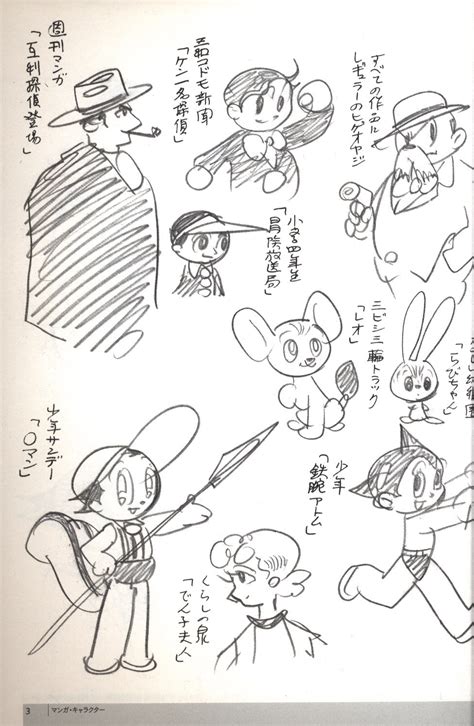 週刊マンガ
「互利探偵登場」
三和コドモ新聞
「ケン一名探偵」
すべての作品に
レギュラーのヒゲオヤジ
小学四年生
「冒険放送局」
三ビシ三輪トラック
「レオ」
幼稚園
「らびちゃん」
少年サンデー
「○マン」
少年
「鉄腕アトム」
くらしの泉
「でん子夫人」
3
マンガ・キャラクター